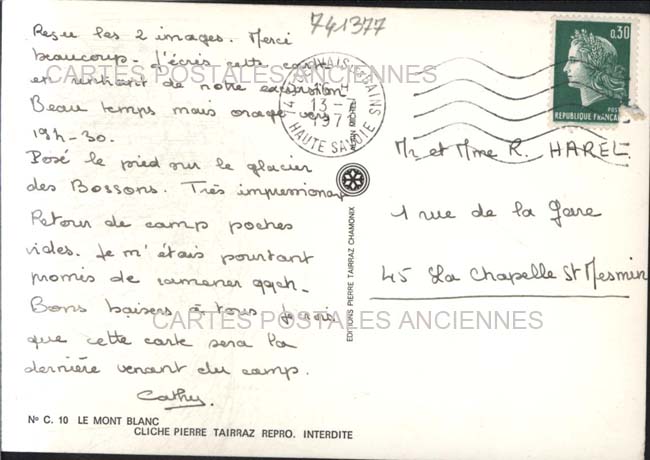 741377
Reçu les 2 images. Merci
beaucoup. J'écris cette carte
en rentrant de notre excursion
Beau temps mais orage vers
19h-30.
Posé le pied sur le glacier
des Bossons. Très impressionant
Retour de camp poches
vides. Je m'étais pourtant
promis de ramener qqch.
Bons baisers à tous. Je crois
que cette carte sera la
dernière venant du camp.
Cathy.
CARTES POSTALES ANCIENNES
CARTES POSTALES ANCIENNES
Nº C. 10 LE MONT BLANC
CLICHE PIERRE TAIRRAZ REPRO. INTERDITE
EDITIONS PIERRE TAIRRAZ CHAMONIX
13 - 7
HAUTE SAVOIE
0,30
POSTES
REPUBLIQUE FRANCAISE
Mr et Mme R. HAREL
1 rue de la Gare
45 La Chapelle St Mesmin